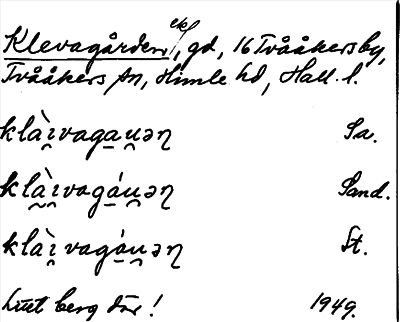 Klevagården, ek/, gd, 16 Tvååkersby,
Tvååkers sn, Himle hd, Hall. l.
klàı̯vaga̲u̯ən̥ Sa.
klà̰ı̯vagá̲u̯ən̥ Sand.
klàı̯vagá̲u̯ən̥ St.
Litet berg där! 1949.